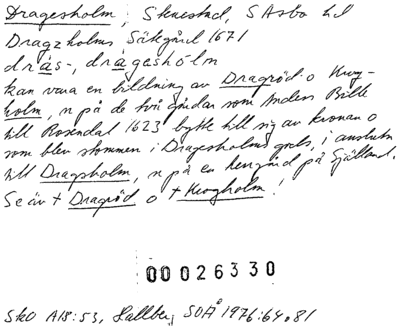 Dragesholm, Skuestad, S Åsbo hd
Dragzholms Sätgård 1671
drás-, drágeshólm
kan vara en bildning av Dragröd o Krog-
holm, n på de två gårdar som Anders Bille
till Rosendal 1623 bytte till sig av kronan o
som blev stommen i Dragesholms gods, i anslutn
till Dragsholm, n på en herrgård på Själland.
Se äv + Dragröd o + Krogholm!
00026330
Sk0 A18:53, Hallberg SOÅ 1976:64,81